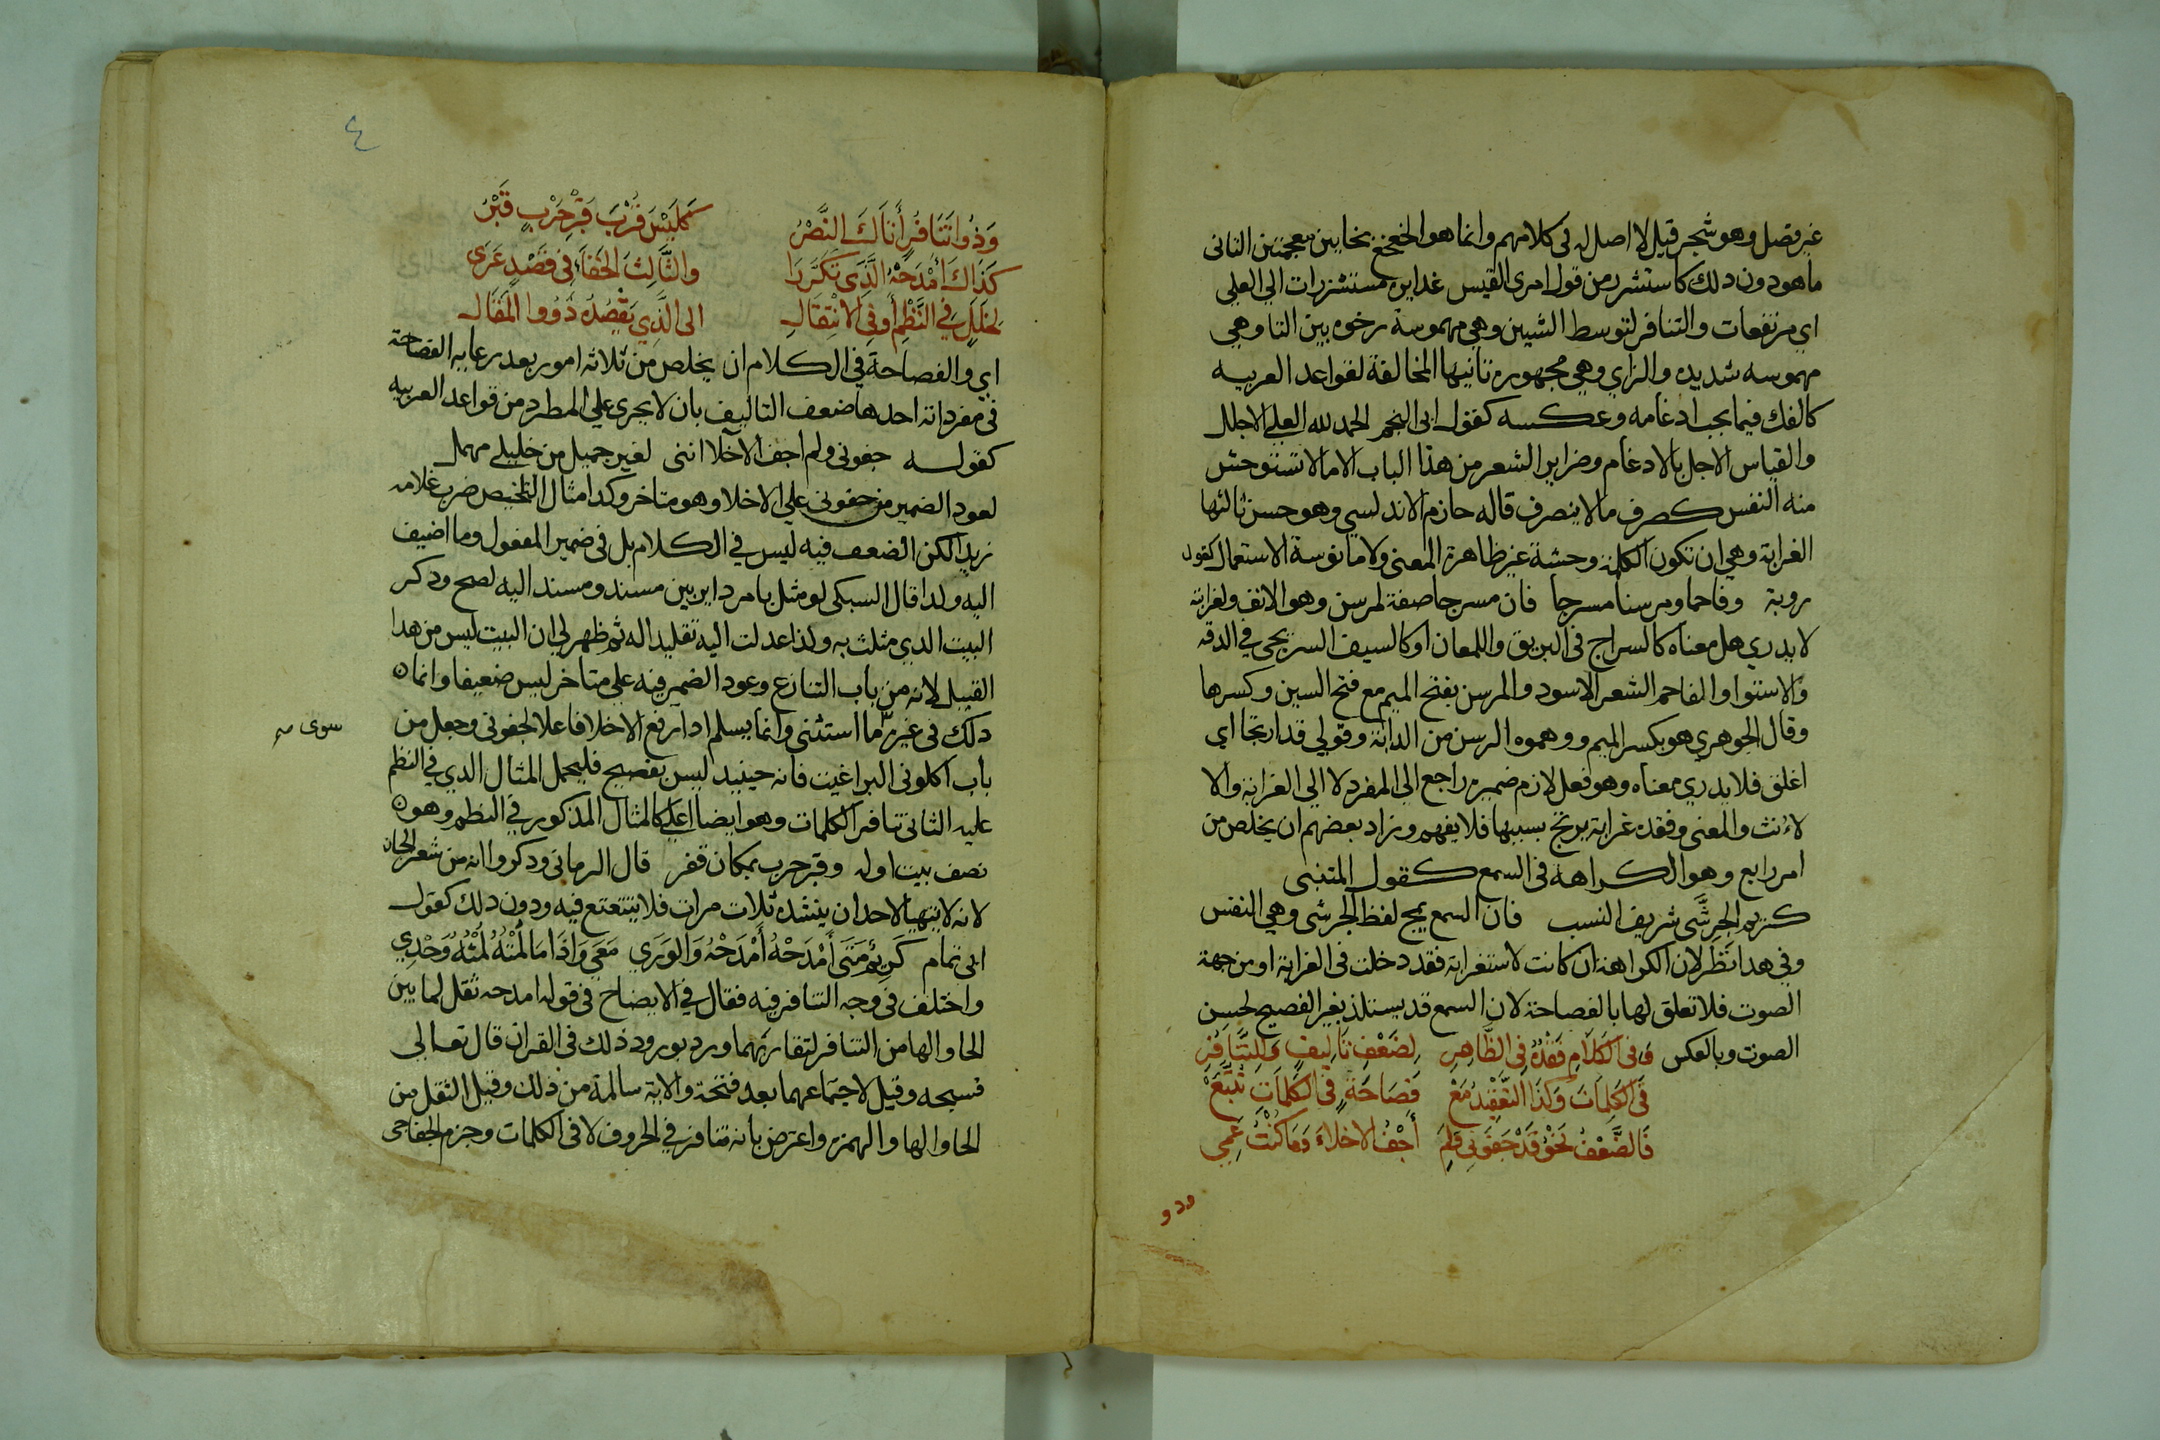 غير فصل وهو شجر قيل لا اصل له في كلامهم وانما هو الخعخع بخايين معجمتين الثاني
ما هو دون ذلك كاستشزر من قول امرى القيس غدايره مستشزرات الى العلى
اي مرتفعات والتنافر لتوسط الشين وهي مهموسة رخوه بين التا وهي
مهموسه شديده والزاي وهي مجهورة ثانيها المخالفة لقواعد العربيه
كالفك فيما يجب ادغامه وعكسه كقول ابى النجم الحمد لله العلي الاجلل
والقياس الاجل بالادغام وضراير الشعر من هذا الباب الا ما لا تستوحش
منه النفس كصرف ما لا ينصرف قاله حازم الاندلسي وهو حسن ثالثها
الغرابة وهي ان تكون الكلمة وحشة غير ظاهرة المعنى ولا مانوسة الاستعمال كقول
روبة وفاحما ومرسنا مسرجا فان مسرجا صفة لمرسن وهو الانف ولغرابته
لا يدري هل معناه كالسراج في البريق واللمعان او كالسيف السريجي في الدقه
والاستوا والفاحم الشعر الاسود والمرسن بفتح الميم مع فتح السين وكسرها
وقال الجوهري هو بكسر الميم ووهموه الرسن من الدابة وقولي قد ارتجا اي
اغلق فلا يدري معناه وهو فعل لازم ضميره راجع الى المفرد لا الى الغرابة والا
لانث والمعنى وفقده غرابة يرتج بسببها فلا يفهم وزاد بعضهم ان يخلص من
امر رابع وهو الكراهه في السمع كقول المتنبى
كريم الجرشى شريف النسب فان السمع يمج لفظ الجرشى وهي النفس
وفي هذا نظر لان الكراهة ان كانت لاستغرابة فقد دخلت في الغرابة او من جهة
الصوت فلا تعلق لها بالفصاحة لان السمع قد يستلذ بغير الفصيح لحسن
الصوت وبالعكس وَفي الكَلَامِ فَقْدُهُ فِي الظَّاهِرِ لِضَعْفِ تَالِيفٍ وَلِلتَّنَافُرِ
فِي الكَلِمَاتِ وَكَذَا التَّعْقِيدُ مَعْ فَصَاحَةٍ فِي الكَلِمَاتِ تُتَّبَعْ
فَالضَّعْفُ نَحْوُ قَدْ جَفَوْنِي وَلَمْ أَجْفُ الاخِلاءَ وَمَا كُنْتُ عَمِي
وذو
٤
وَذُوا تَنَافُرٍ أَتَاكَ النَّصْرُ كَلَيْسَ قُرْبَ قَبْرِ حَرْبٍ قَبْرُ
كَذَاكَ أَمْدَحْهُ الَّذِي تَكَرَّرَا وَالثَّالِثُ الخَفَاءُ فِي قَصْدٍ عَرَى
لِخَلَلٍ فِي النَّظْمِ أَوْ فِي الانْتِقَالِ الى الَّذِي يَقْصِدُهُ ذَوُوا المَقَالِ
اي والفصاحة في الكلام ان يخلص من ثلاثه امور بعد رعايه الفصاحة
في مفرداته احدها ضعف التاليف بان لا يجرى على المطرد من قواعد العربيه
كقوله جفوني ولم اجف الاخلا اننى لغير جميل من خليلي مهمل
لعود الضمير من جفوني على الاخلا وهو متاخر وكذا مثال التلخيص ضرب غلامه
زيدا لكن الضعف فيه ليس في الكلام بل في ضمير المفعول وما اضيف
اليه ولذا قال السبكى لو مثل بامر داير بين مسند ومسند اليه لصح وذكر
البيت الذي مثلت به ولذا عدلت اليه تقليدا له ثم ظهر لي ان البيت ليس من هذا
القبيل لانه من باب التنازع وعود الضمير فيه على متاخر ليس ضعيفا وانما
ذلك في غير ما استثنى وانما يسلم اذا رفع الاخلا فاعلا لجفوني وجعل من
سوى
باب اكلوني البراغيت فانه حينيد ليس بفصيح فليحمل المثال الذي في النظم
عليه الثاني تنافر الكلمات وهو ايضا اعلى كالمثال المذكور في النظم وهو
نصف بيت اوله وقبر حرب بمكان قفر قال الرماني وذكروا انه من شعر الجان
لانه لا يتهيا لاحد ان ينشده ثلاث مرات فلا يتتعتع فيه ودون ذلك كقول
ابي تمام كَرِيْمٌ مَتَى أَمْدَحْهُ أَمْدَحْهُ وَالوَرَى مَعِي وَاذَا مَا لُمْتُهُ لُمْتُهُ وَحْدِي
واختلف في وجه التنافر فيه فقال في الايضاح في قوله امدحه ثقل لما بين
الحا والها من التنافر لتقاربهما ورد بورود ذلك في القران قال تعالى
فسبحه وقيل لاجتماعهما بعد فتحة والاية سالمة من ذلك وقيل الثقل من
الحا والها والهمزة واعترض بانه تنافر في الحروف لا في الكلمات وجزم الخفاجى